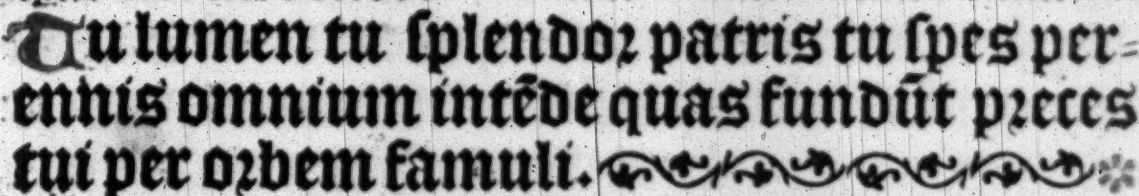 Tu lumen tu ſplendoꝛ patris tu ſpes per⸗
ennis omnium intēde quas fundūt pꝛeces
tui per oꝛbem famuli.